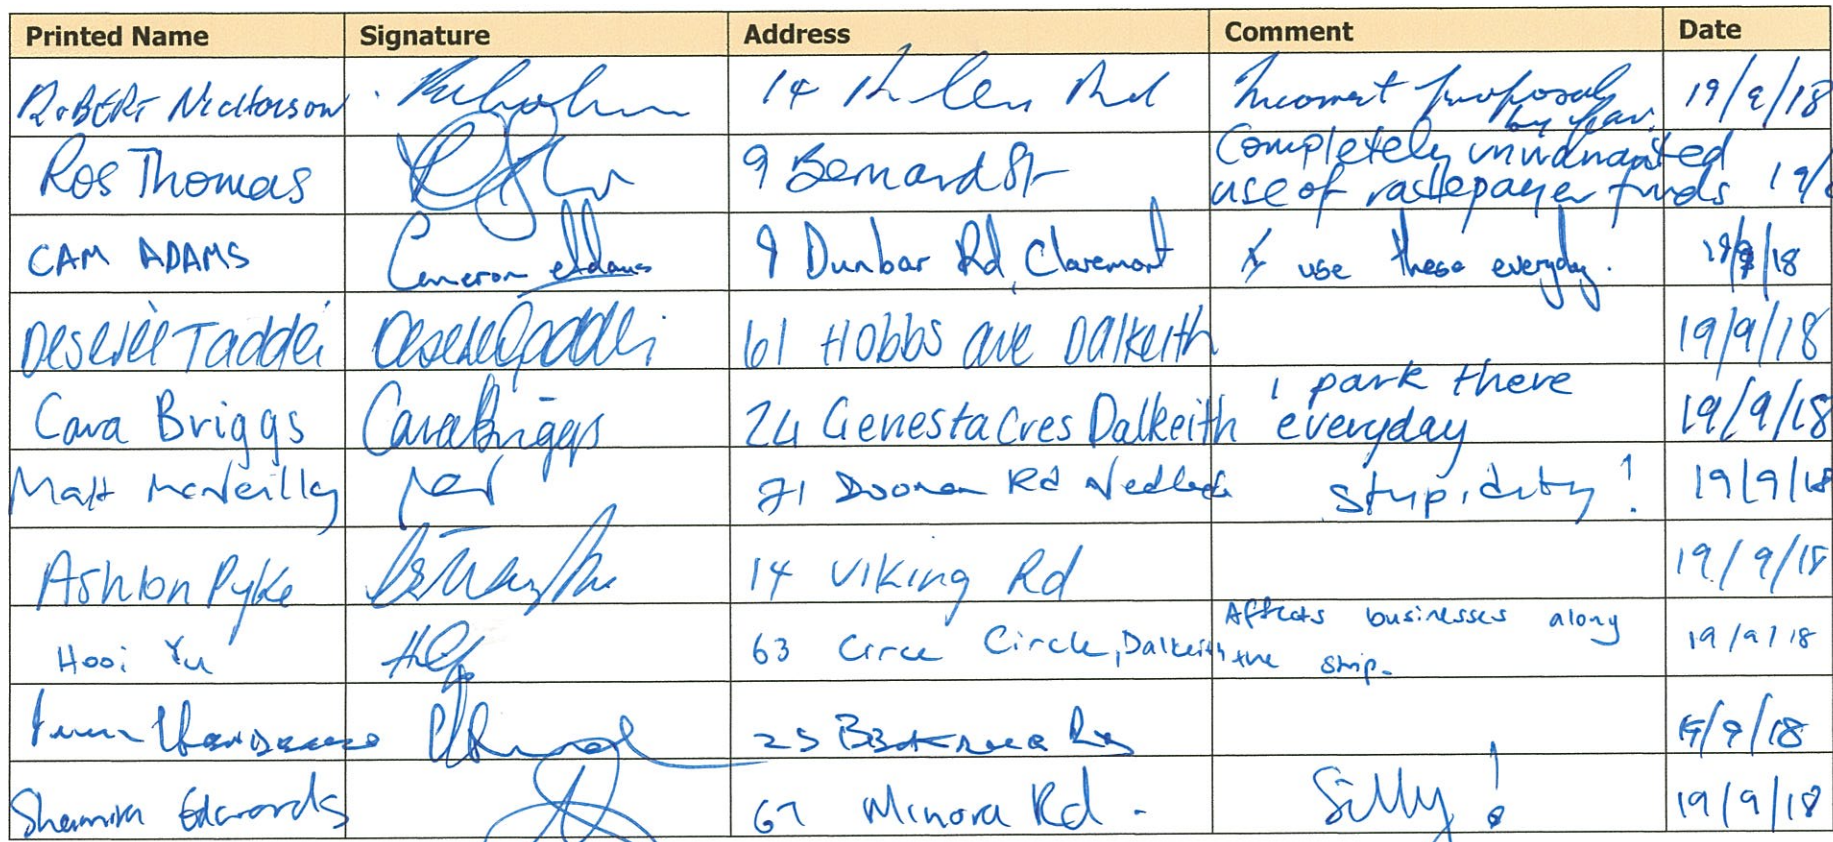 Printed Name Signature Address Comment Date
ROBERT NICHOLSON 14 Rd proposals 19/9/18
by
Ros Thomas 9 Bernard St Completely unwarranted
use of ratepayer funds 19/
CAM ADAMS Cameron Adams 9 Dunbar Rd, Claremont I use these everyday. 19/9/18
Deserèe Taddei 61 Hobbs ave Dalkeith 19/9/18
Cara Briggs Cara Briggs 24 Genesta Cres Dalkeith i park there
everyday 19/9/18
Matt McNeilly 71 Doonan Rd Nedlands stupidity! 19/9/18
Ashton Pyke 14 Viking Rd 19/9/18
Hooi Yu 63 Circe Circle, Dalkeith Affects businesses along
the strip. 19/9/18
25 19/9/18
Edwards 67 Minora Rd. Silly! 19/9/18